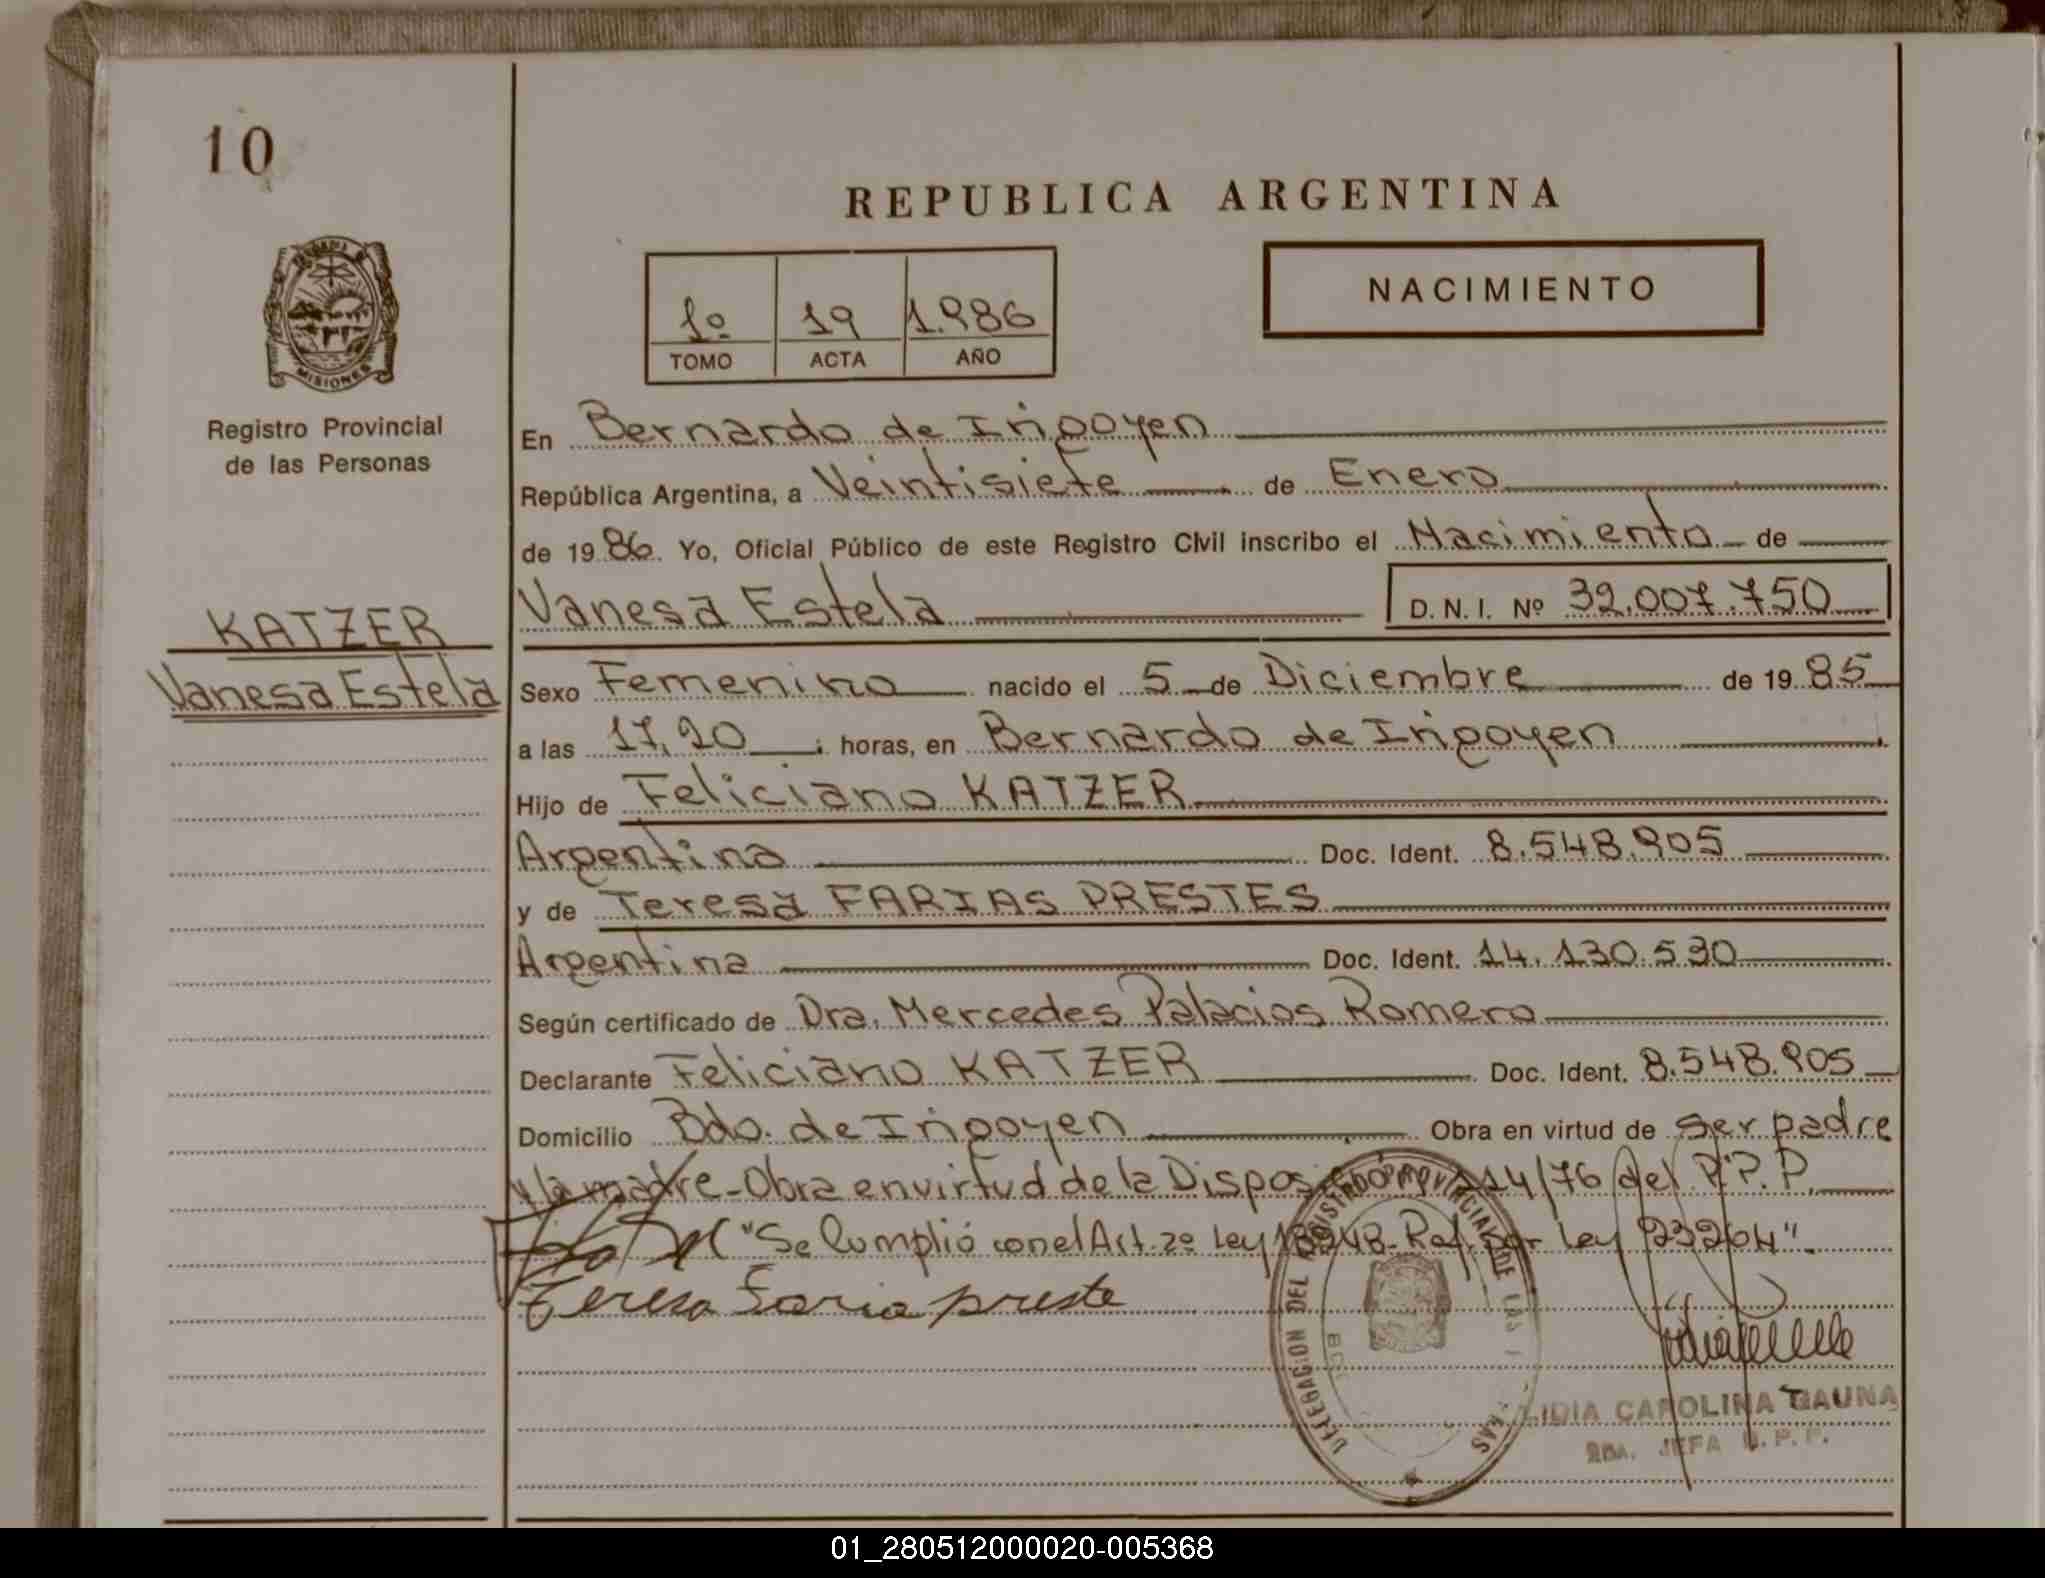 10
REPUBLICA ARGENTINA
1º 19 1.986
TOMO ACTA AÑO
NACIMIENTO
MISIONES
Registro Provincial
de las Personas
KATZER
Vanesa Estela
En Bernardo de Irigoyen
República Argentina, a Veintisiete de Enero
de 1986. Yo, Oficial Público de este Registro Civil inscribo el Nacimiento de
Vanesa Estela D. N. I. Nº 32.007.750
Sexo Femenino nacido el 5 de Diciembre de 1985
a las 17,20 horas, en Bernardo de Irigoyen
Hijo de Feliciano KATZER
Argentina Doc. Ident. 8.548.905
y de Teresa FARIAS PRESTES
Argentina Doc. Ident. 14.130.530
Según certificado de Dra. Mercedes Palacios Romero
Declarante Feliciano KATZER Doc. Ident. 8.548.905
Domicilio Bdo. de Irigoyen Obra en virtud de ser padre
y la madre - Obra en virtud de la 214/76 del R.P.P.
"Se Cumplió con el Art. 2º Ley 18248 - Ref. por Ley 23264".
Teresa Faria preste
DELEGACION DEL REGISTRO PROVINCIAL DE LAS
LIDIA CAROLINA GAUNA
2DA. JEFA R. P. P.
01_280512000020-005368